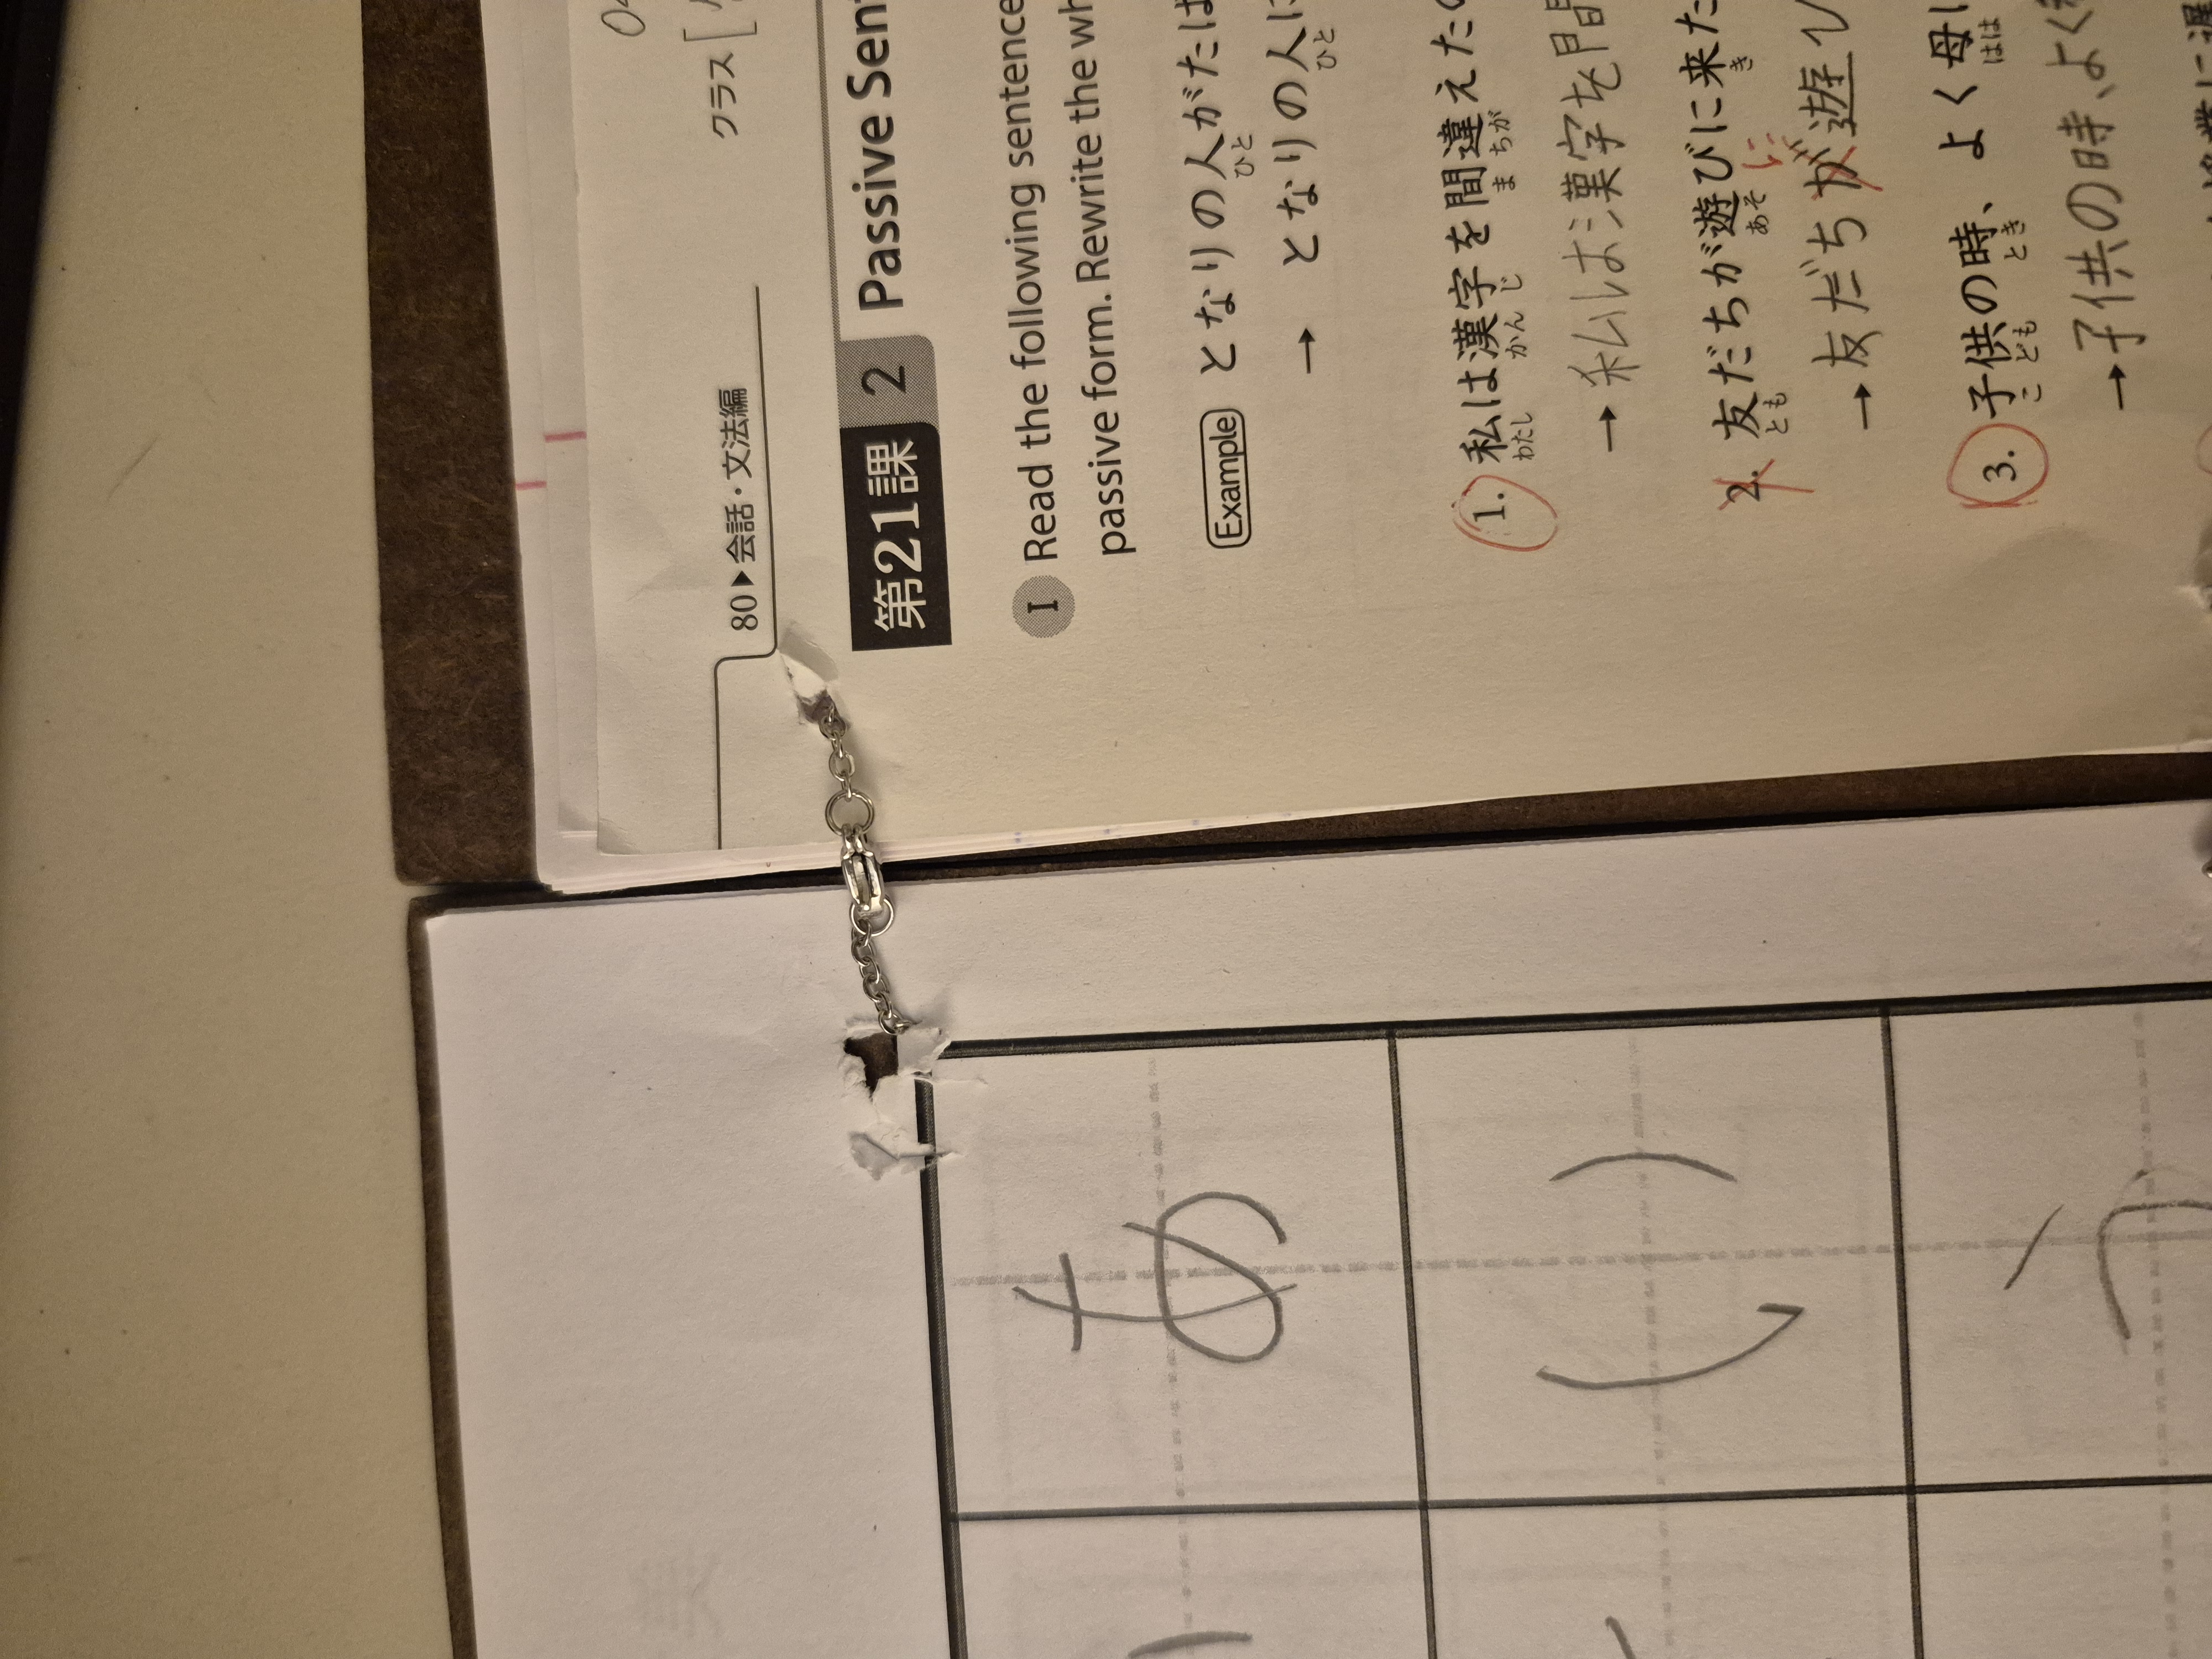 あ
い
う
80▶会話・文法編
クラス
第21課 2 Passive Sen
I Read the following sentence
passive form. Rewrite the wh
Example となりの人がたば
ひと
→ となりの人に
ひと
1. 私は漢字を間違えた
わたし かん じ ま ちが
→私は漢字を間
2. 友だちが遊びに来た
とも あそ き
に
→友だちが遊び
3. 子供の時、よく母に
こ ども とき はは
→子供の時、よく